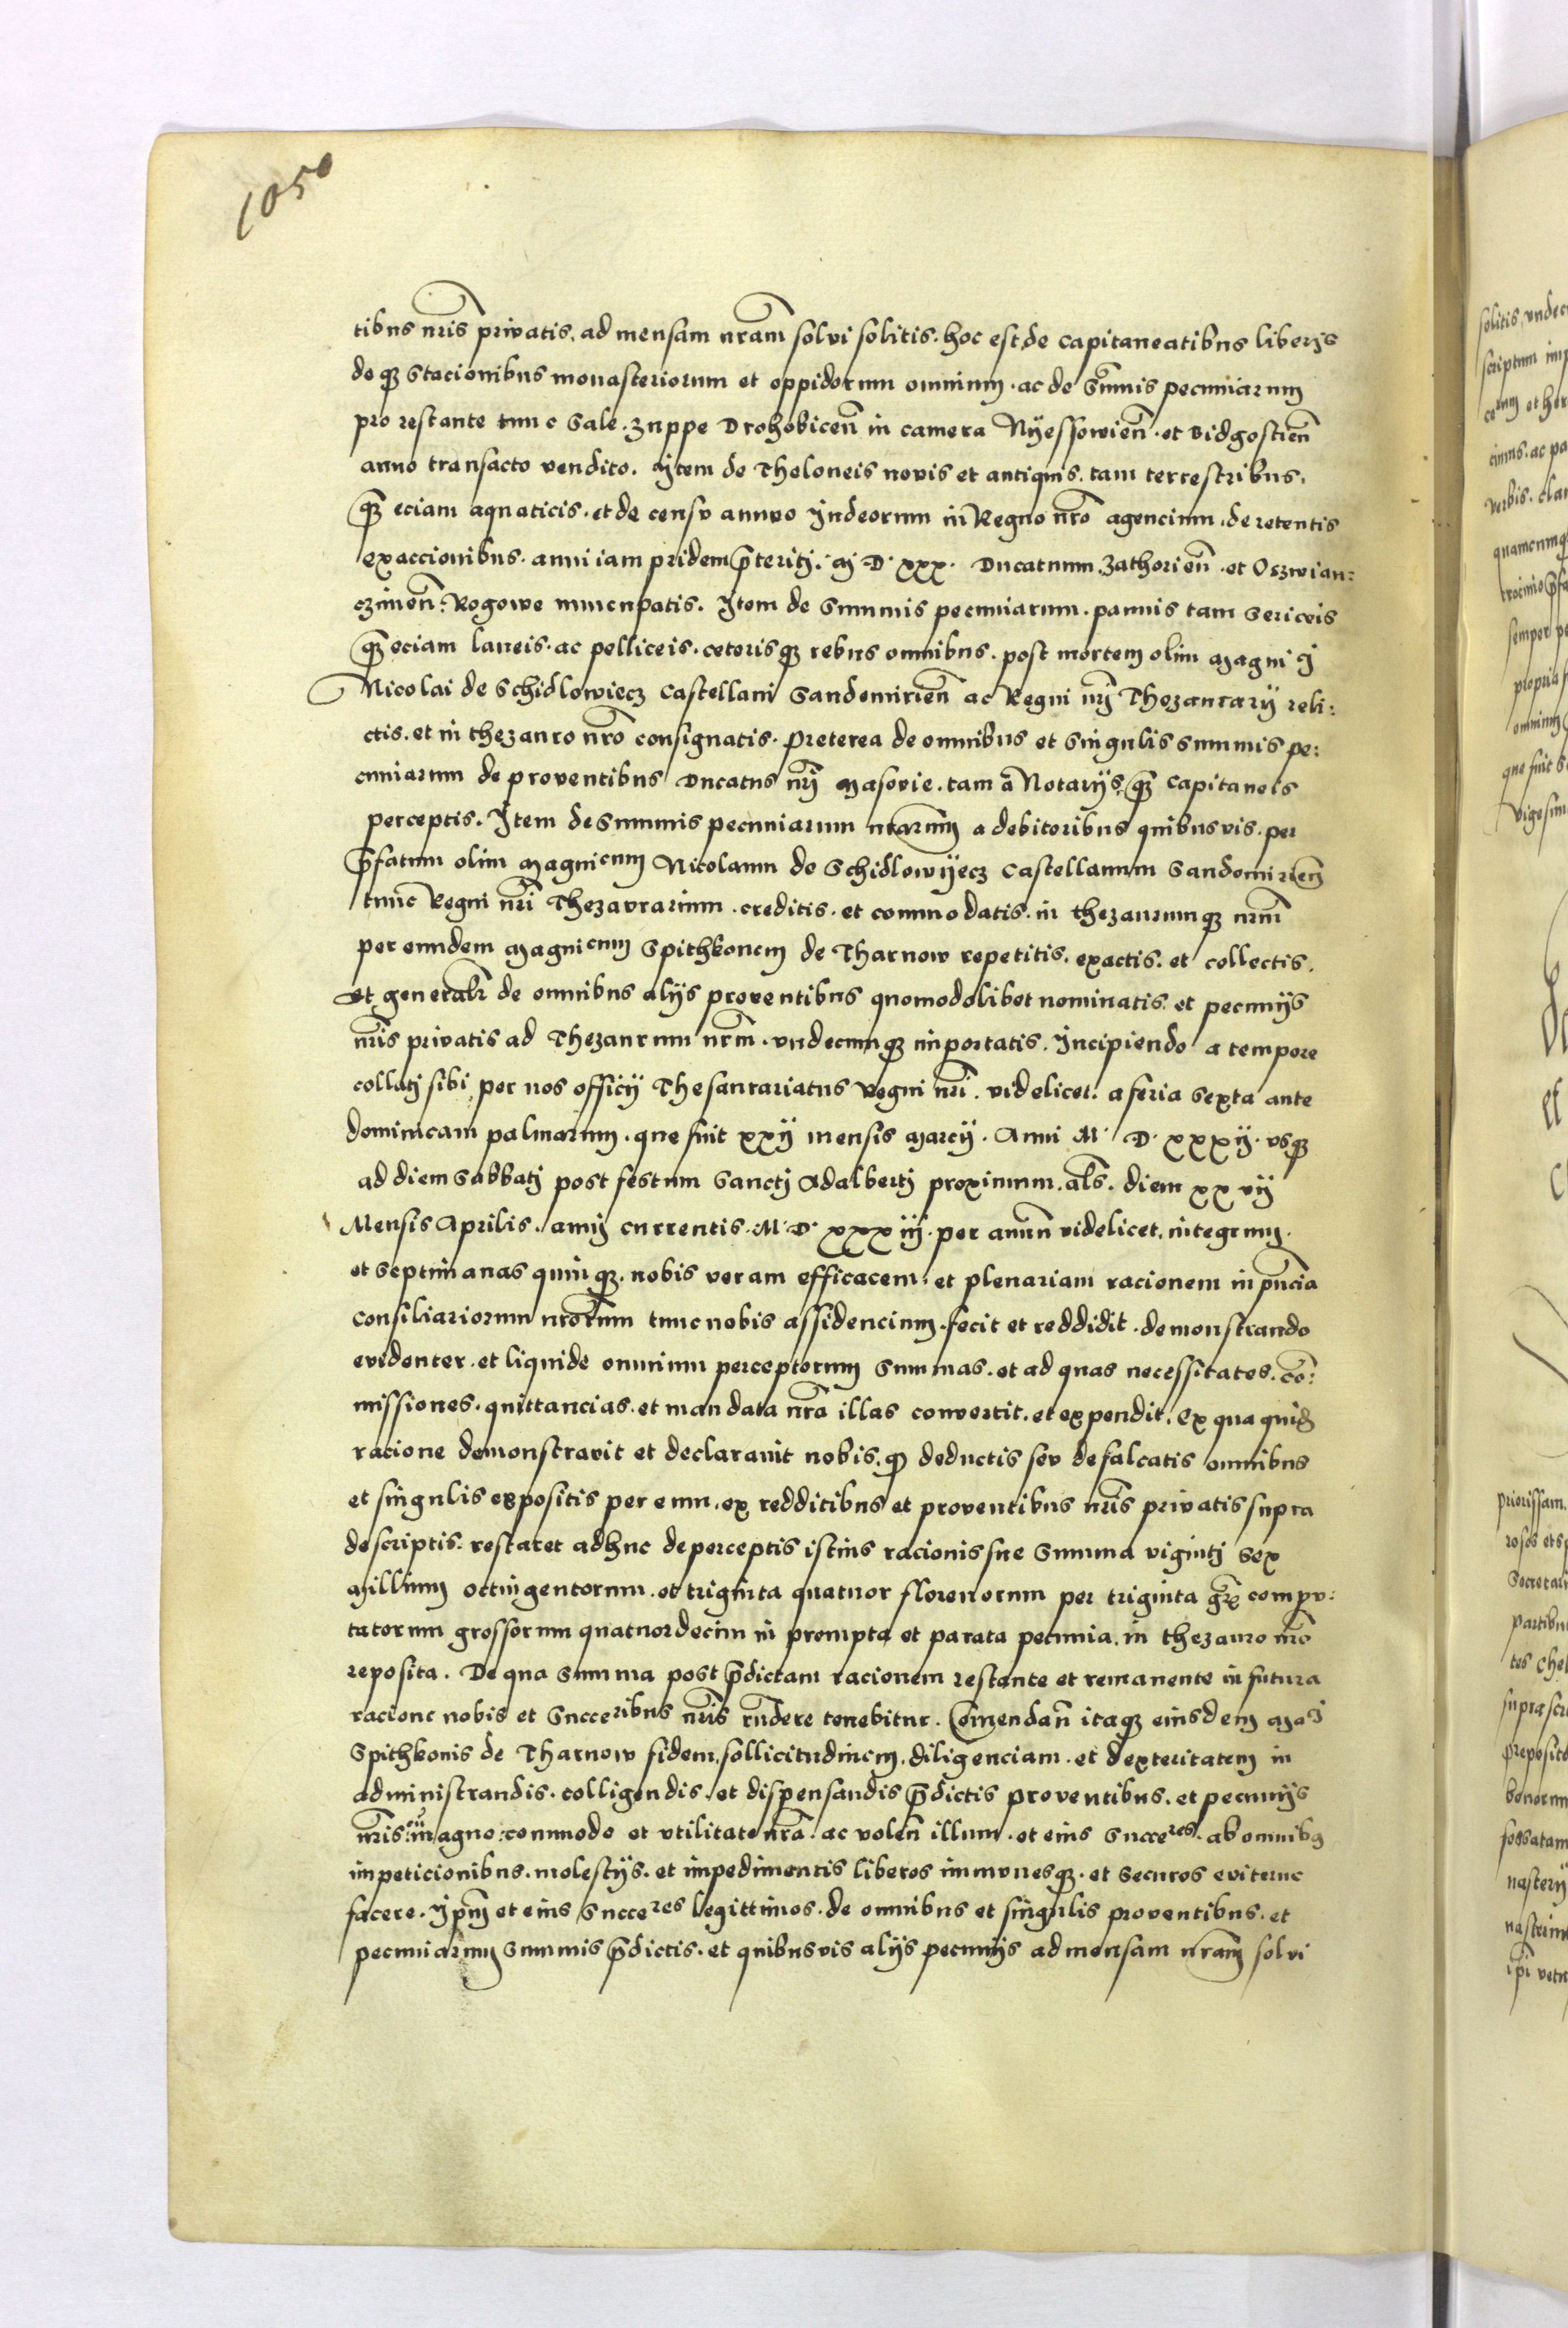 1050
tibus nr̃is privatis. ad mensam nr̃am solvi solitis. hoc est, de capitaneatibus liberis
de qȝ Stacionibus monasteriorum et oppidorum omnium. ac de Sum̃is pecuniarum
pro restante tunc Sale. Zuppe Drohobiceñ in camera Nyessowieñ. et Bidgostieñ
anno transacto vendito. Item de Theloneis novis et antiquis. tam terrestribus.
qȝ eciam aquaticis. et de censu annuo Iudeorum in Regno nr̃o agencium. de retentis
exaccionibus. anni iam pridem p̃teritj. M D. xxx. Ducatuum Zathorieñ. et Oszwian:
czimeñ. Rogowe nuncupatis. Item de Summis pecuniarum. pannis tam Sericeis
qȝ eciam laneis. ac pelliceis. ceteris qȝ rebus omnibus. post mortem olim Magni I
Nicolai de Schidlowiecz Castellani Sandomirieñ ac Regni nr̃j Thezaurarij reli:
ctis. et in thezauro nr̃o consignatis. Preterea de omnibus et Singulis Summis pe:
cuniarum de proventibus Ducatus nr̃j Masovie. tam ā Notarijs, qȝ Capitaneis
perceptis. Item de Summis pecuniarum nr̃arum a debitoribus quibusvis. per
p̃fatum olim Magnicum Nicolaum de Schidlowyecz Castellanum Sandomirieñ
tunc Regni nr̃i Thezaurarium. creditis. et commodatis. in thezaurumqȝ nr̃m
per eundem Magnicum Spithkonem de Tharnow repetitis. exactis. et collectis.
et generalr̃ de omnibus alijs proventibus quomodolibet nominatis. et pecunijs
nr̃is privatis ad Thezaurum nr̃m. undecumqȝ importatis. Incipiendo a tempore
collati sibi per nos officij Thesaurariatus Regni nr̃i. videlicet. a feria Sexta ante
dominicam palmarum. que fuit xxij mensis Marcij. Anni M. D. xxxij. usqȝ
ad diem Sabbatj post festum Sanctj Adalbertj proximum. als̃. diem xxvij
Mensis Aprilis. annj currentis. M. D. xxxiij. per annũ videlicet, integrum.
et Septimanas quinqȝ. nobis veram efficacem. et plenariam racionem in pñcia
Consiliariorum nr̃orum tunc nobis assidencium. fecit et reddidit. demonstrando
evidenter. et liquide omnium perceptorum Summas. et ad quas necessitates. cõ:
missiones. quittancias. et mandata nr̃a illas convertit. et expendit. Ex qua quid̃
racione demonstravit et declaravit nobis. qȝ deductis seu defalcatis omnibus
et singulis expositis per eum. ex redditibus et proventibus nr̃is privatis supra
descriptis. restaret adhuc de perceptis istius racionis sue Summa vigintj Sex
Millium octingentorum. et triginta quatuor florenorum per triginta gr̃ compu:
tatorum grossorum quatuordecim in prompta et parata pecunia. in thezauro nr̃o
reposita. De qua Summa post p̃dictam racionem restante et remanente in futura
racione nobis et Succeribus nr̃is rñdere tenebitur. Com̃endañ itaqȝ eiusdem Mci
Spithkonis de Tharnow fidem, sollicitudinem. diligenciam. et dexteritatem in
administrandis. colligendis. et dispensandis p̃dictis proventibus. et pecunijs
nr̃is cũ magno commodo et utilitate nr̃a. ac voleñ illum. et eius Succeres. ab omnibus
impeticionibus. molestijs. et impedimentis liberos immunesqȝ. et Securos eviterne
facere. Ip̃m et eius Succeres legittimos. de omnibus et singulis proventibus. et
pecuniarum Summis p̃dictis. et quibusvis alijs pecunijs ad mensam nr̃am solvi